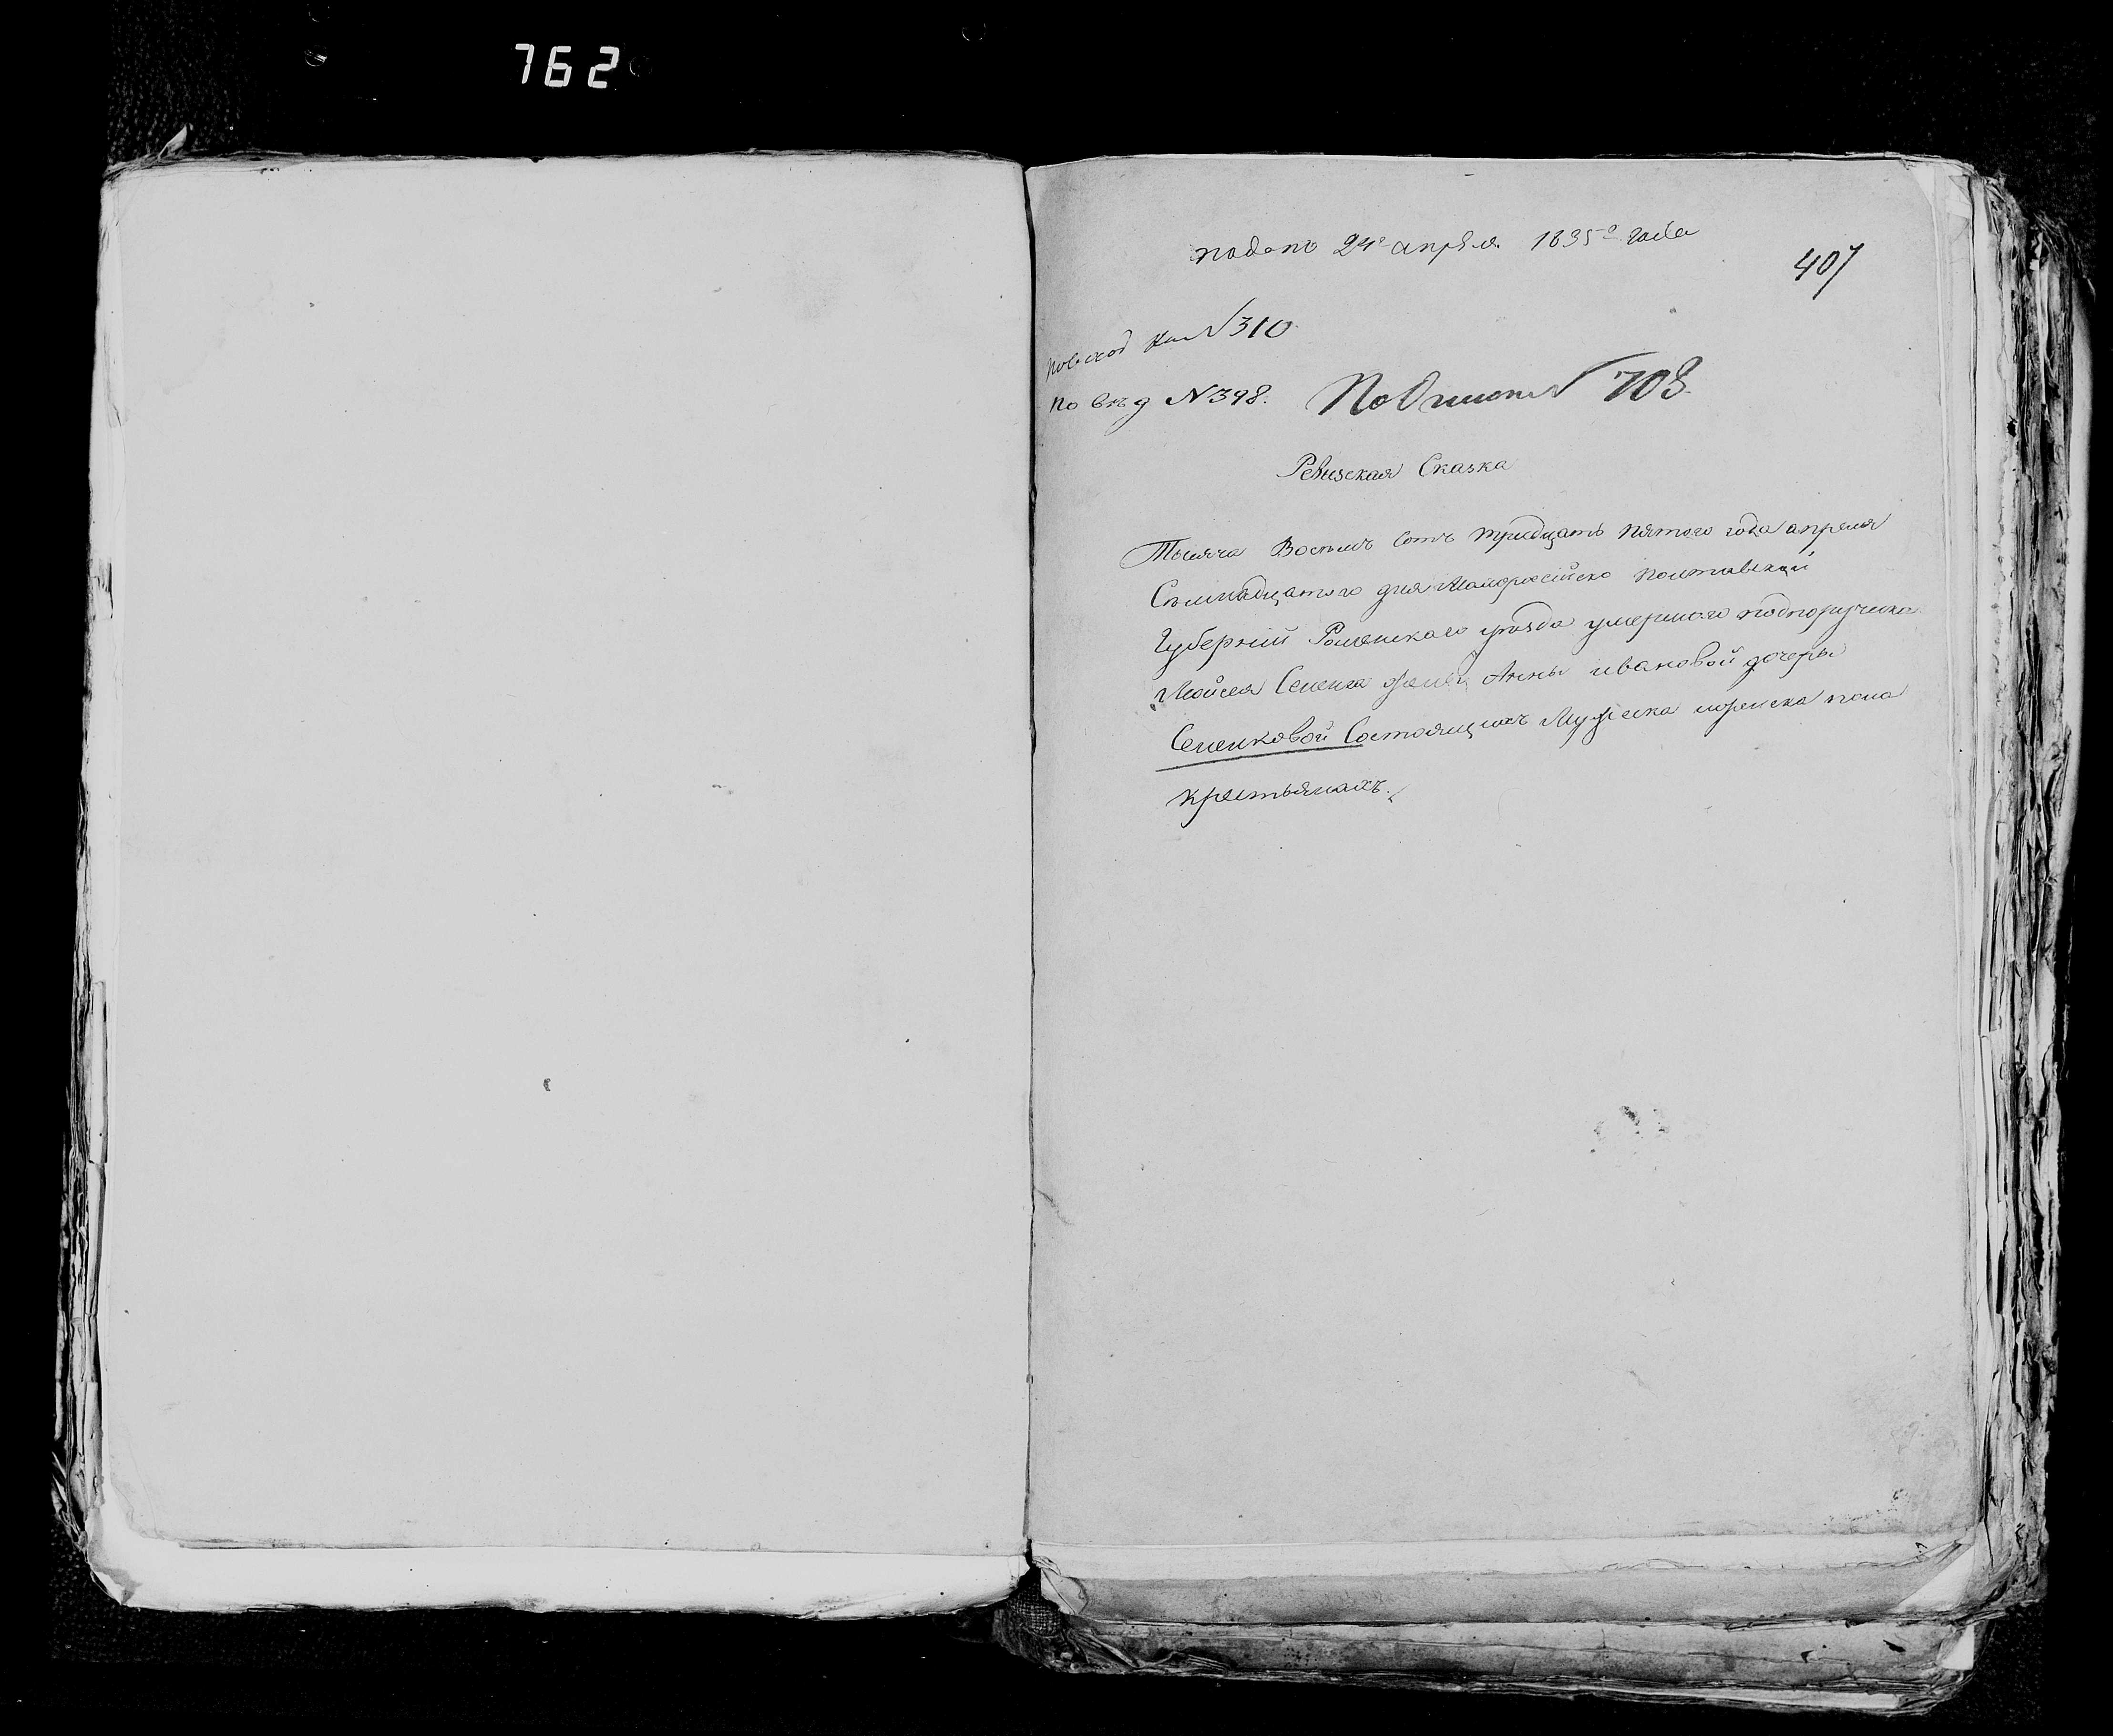 762
поданъ 24го апреля 1835го года
407
№ 310
По вѣд № 398. По Описи № 708
Ревизская Сказка
Тысяча Восемь Сотъ тридцать пятого года апреля
Семнадцатого дня Малоросийско полтавской
Губернии Роменскаго уезда умершаго подпоручика
Мойсея Сененка жены Анны ивановой дочеры
Сененковой Состоящихъ Мужеска иженска пола
крестьянахъ.